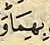 بِهِمَا وَ